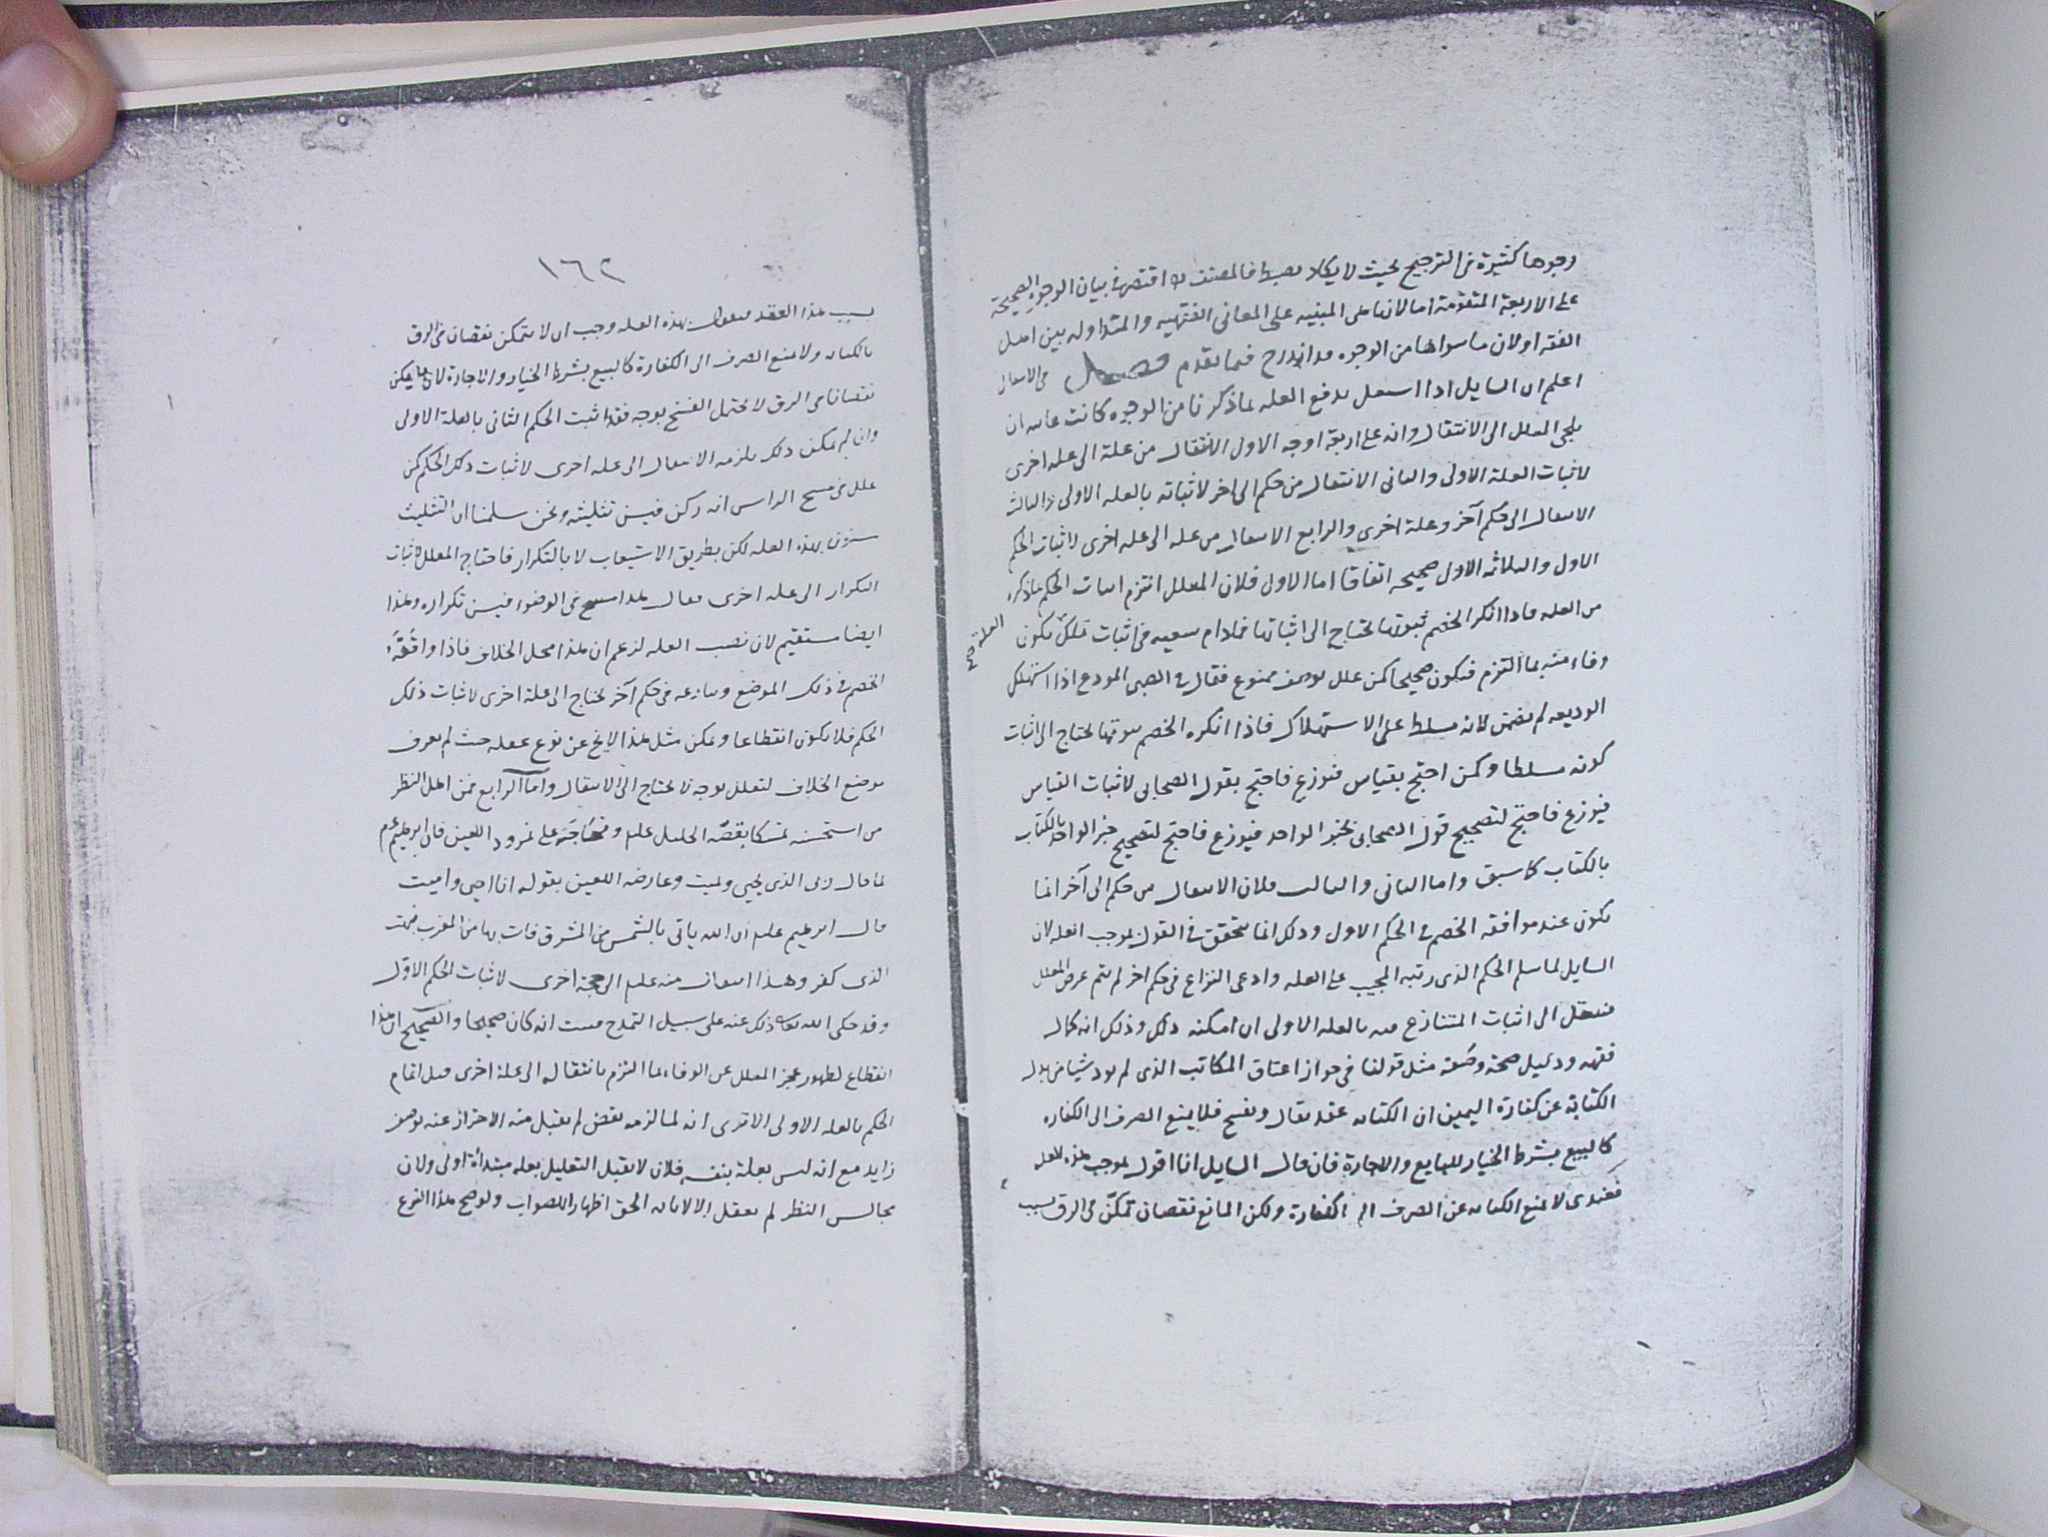 وجوها كثيرة في الترجيح بحيث لا يكاد يضبط فالمصنف اقتصر في بيان الوجوه الصحيحة
على الاربعة المتقدمة اما لانها هي المبنيه على المعاني الفقهيه والمتداوله بين اهل
الفقه او لان ما سواها من الوجوه قد اندرج فيما تقدم فصل في الانتقال
اعلم ان السايل اذا اشتغل بدفع العله بما ذكرنا من الوجوه كانت غايته ان
يلجئ المعلل الى الانتقال وانه على اربعة اوجه الاول الانتقال من علة الى علة اخرى
لاثبات العلة الاولى والثانى الانتقال من حكم الى اخر لاثباته بالعله الاولى والثالث
الانتقال الى حكم آخر وعلة اخرى والرابع الانتقال من عله الى عله اخرى لاثبات الحكم
الاول والثلاثه الاول صحيحه اتفاقا اما الاول فلان المعلل التزم اثبات الحكم بما ذكره
من العله فاذا انكر الخصم ثبوتها يحتاج الى اثباتها فمادام سعيه في اثبات تلك يكون
العلة صح
وفاء منه بما التزم فيكون صحيحا كمن علل بوصف ممنوع فقال في الصبى المودع اذا استهلك
الوديعه لم يضمن لانه مسلط على الاستهلاك فاذا انكره الخصم يحتاج الى اثبات
كونه مسلطا وكمن احتج بقياس فنوزع فاحتج بقول الصحابى لاثبات القياس
فنوزع فاحتج لتصحيح قول الصحابى بخبر الواحد فنوزع فاحتج لتصحيح خبر الواحد بالكتاب
بالكتاب كما سبق واما الثانى والثالث فلان الانتقال من حكم الى آخر انما
يكون عند موافقه الخصم في الحكم الاول وذلك انما يتحقق في القول بموجب العله لان
السايل لما سلم الحكم الذى رتبه المجيب على العله وادعى النزاع في حكم اخر لم يتم غرض المعلل
فينتقل الى اثبات المتنازع فيه بالعله الاولى ان امكنه ذلك وذلك انه كمال
فقهه ودليل صحة وصفه مثل قولنا في جواز اعتاق المكاتب الذى لم يود شيا من بدل
الكتابة عن كفارة اليمين ان الكتابه عقد يقال ويفسخ فلا يمنع الصرف الى الكفاره
كالبيع بشرط الخيار للبايع والاجارة فان قال السايل انا اقول بموجب هذه العله
فعندى لا يمنع الكتابه عن الصرف الى الكفارة ولكن المانع نقصان تمكن في الرق بسبب
١٦٢
بسبب هذا العقد بهذه العله وجب ان لا يتمكن نقصان في الرق
بالكتابه ولا يمنع الصرف الى الكفارة كالبيع بشرط الخيار والاجارة لان ما يمكن
نقصانا في الرق لا يحتمل الفسخ بوجه فقد اثبت الحكم الثانى بالعلة الاولى
وان لم يمكن ذلك يلزمه الانتقال الى عله اخرى لاثبات ذلك الحكم كمن
علل في مسح الراس انه ركن فيسن تثليثه ونحن سلمنا ان التثليث
مسنون بهذه العله لكن بطريق الاستيعاب لا بالتكرار فاحتاج المعلل لاثبات
التكرار الى عله اخرى فقال هذا مسح في الوضوء فيسن تكراره وهذا
ايضا مستقيم لان نصب العله لزعم ان هذا محل الخلاف فاذا وافقه
الخصم في ذلك الموضع ونازعه في حكم آخر يحتاج الى علة اخرى لاثبات ذلك
الحكم فلا يكون انقطاعا ولكن مثل هذا لا يخ عن نوع غفله حيث لم يعرف
موضع الخلاف لتعلل بوجه لا يحتاج الى الانتقال واما الرابع فمن اهل النظر
من استحسنه تمسكا بقصة الخليل علم ومحاجته على نمرود اللعين فان ابرهيم عم
لما قال ربى الذى يحيى ويميت وعارضه اللعين بقوله انا احيى واميت
قال ابرهيم علم ان الله ياتى بالشمس من المشرق فات بها من المغرب فبهت
الذى كفر وهذا انتقال منه علم الى حجة اخرى لاثبات الحكم الاول
وقد حكى الله ذلك عنه على سبيل التمدح فثبت انه كان صحيحا والصحيح ان هذا
انقطاع لظهور عجز المعلل عن الوفاء بما التزم بانتقاله الى علة اخرى قبل اتمام
الحكم بالعله الاولى الا ترى انه لما لزمه نقض لم يقبل منه الاحتراز عنه بوصف
زايد مع انه ليس بعلة بنفسه فلان لا يقبل التعليل بعله مبتدأة اولى ولان
مجالس النظر لم يعقل الا لابانه الحق اظهارا للصواب ولو صح هذا النوع